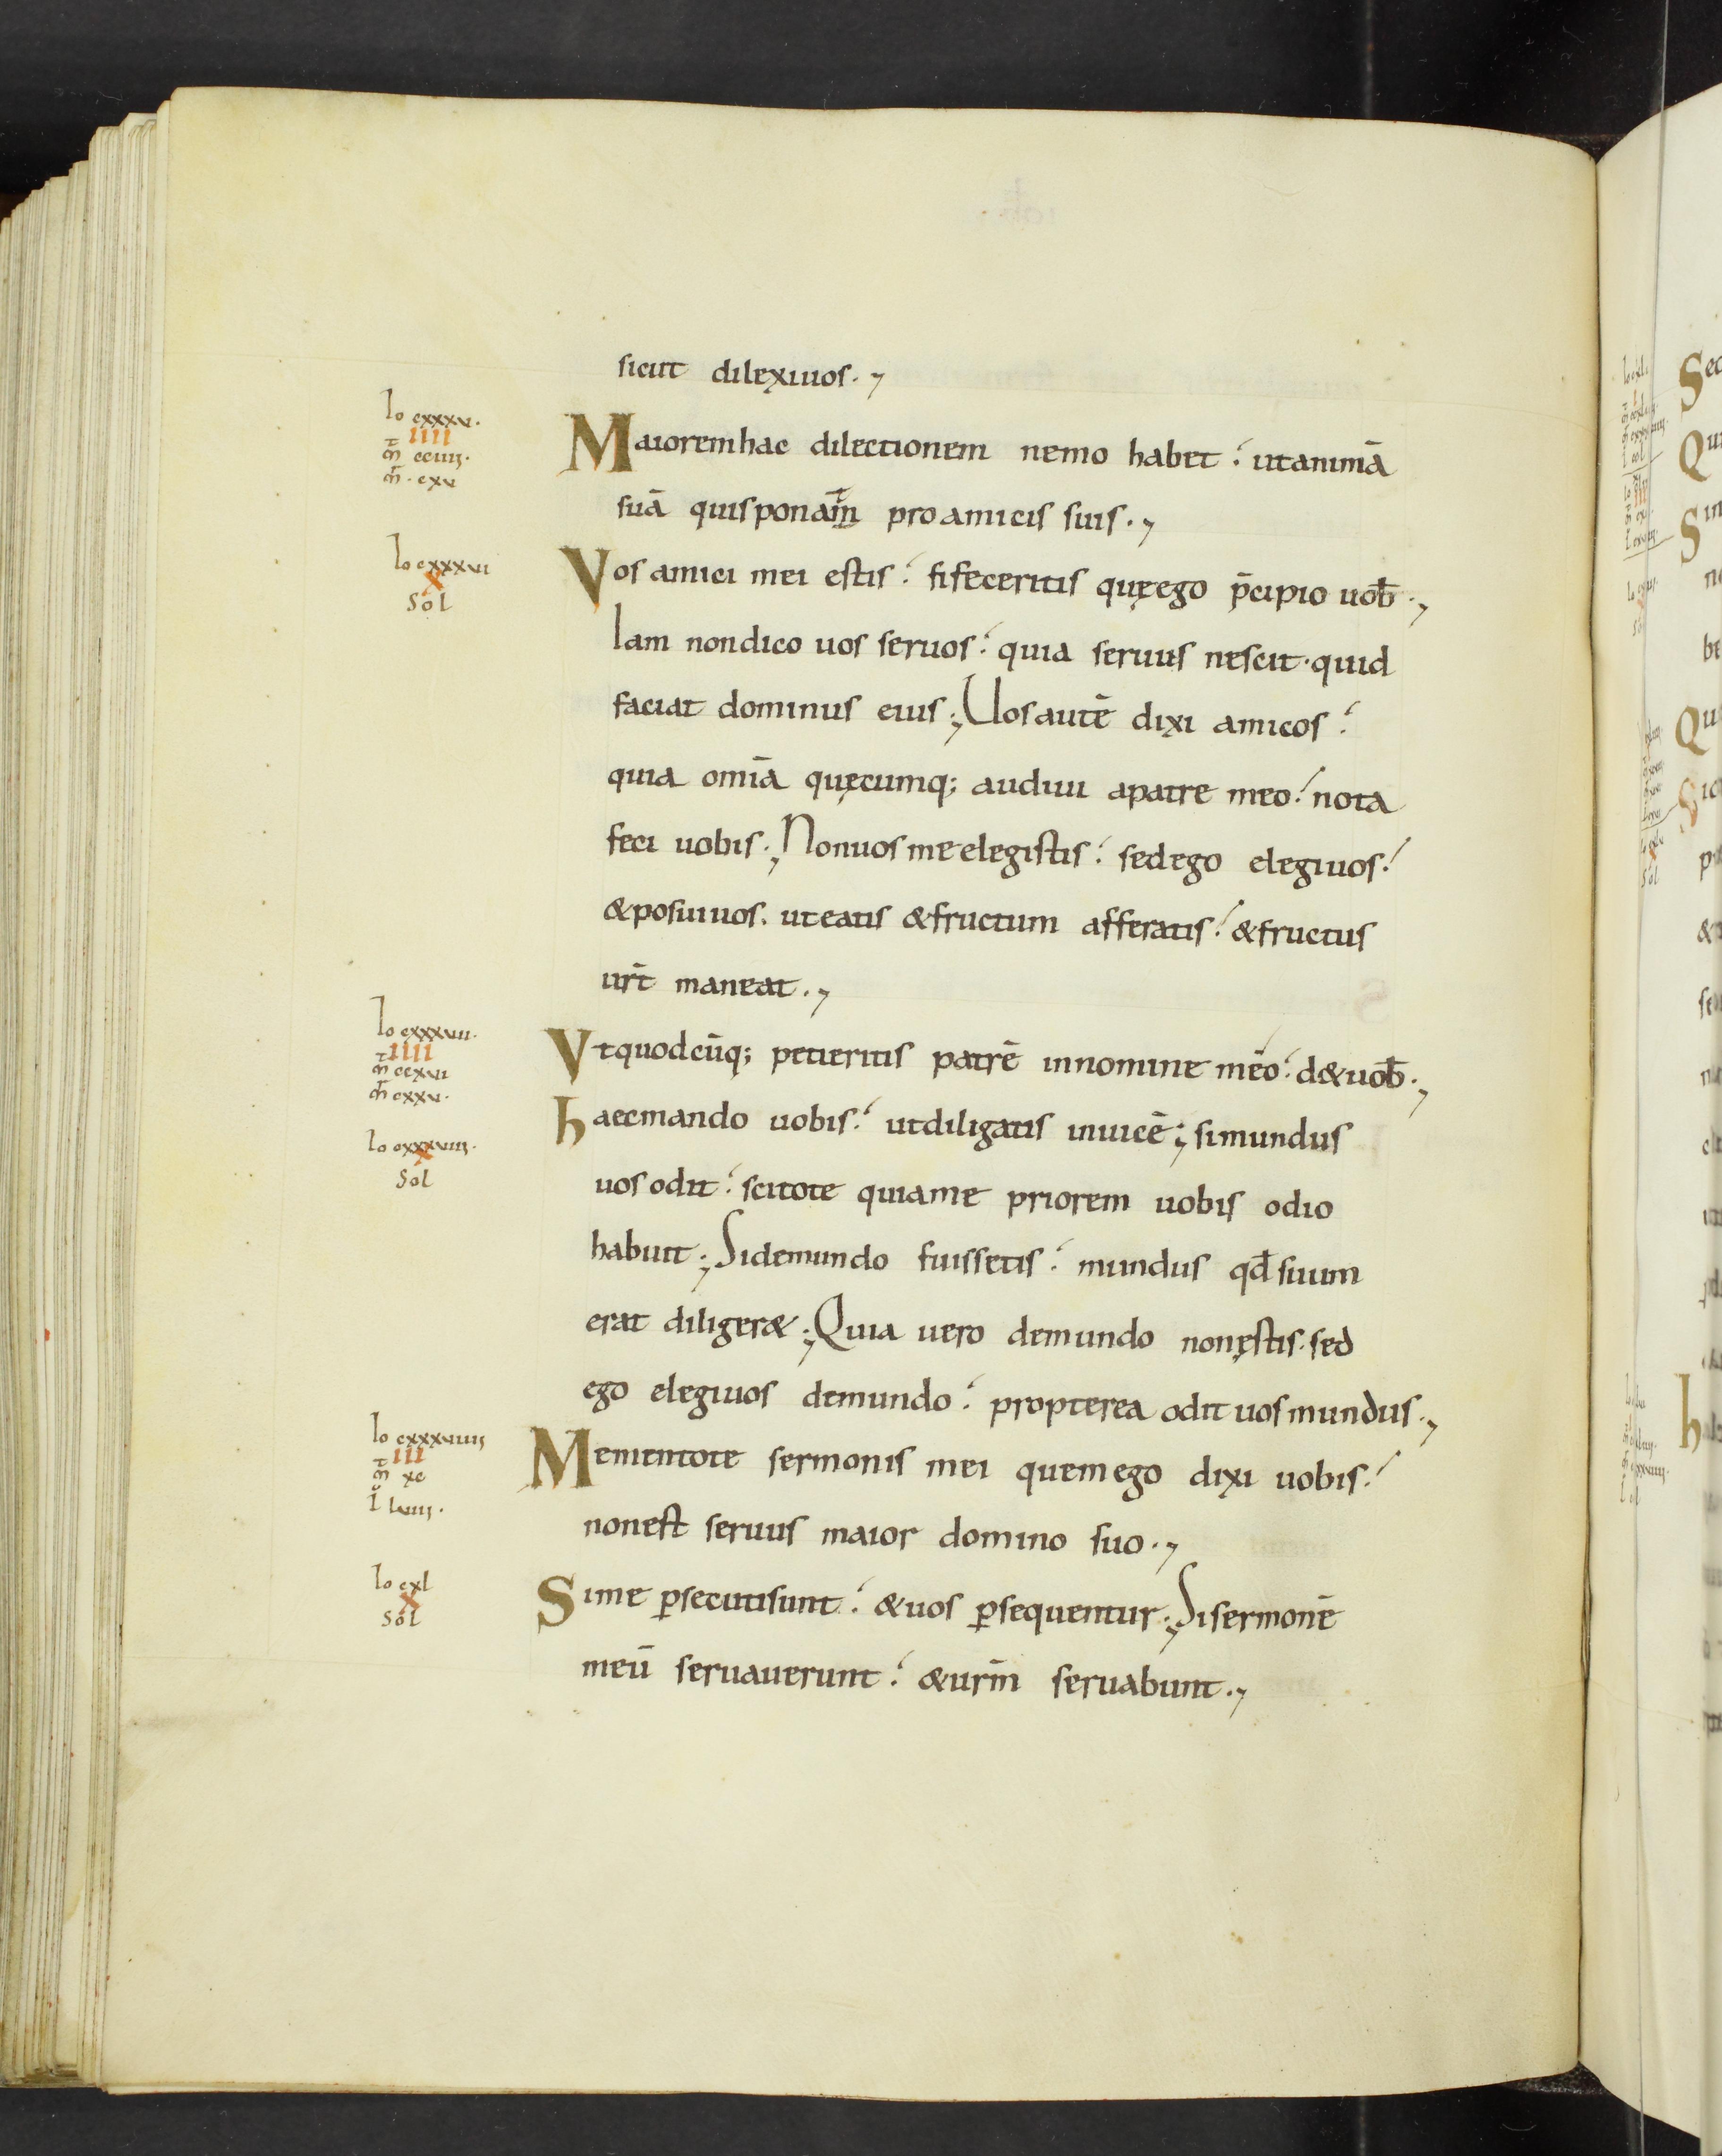 sicut dilexiuos.,
Io cxxxv.
IIII
mt cciiii.
mr. cxv
Maioremhac dilectionem nemo habet: utanimā
suā quisponat proamicis suis.,
Io cxxxvi
X
Sol
Vos amici mei estis: sifeceritis quęego p̄cipio uob̄.,
Iam nondico uos seruos: quia seruus nescit. quid
faciat dominus eius; Uosautē dixi amicos:
quia omīa quęcumq; audiui apatre meo: nota
feci uobis; Nonuos meelegistis: sedego elegiuos:
&posuiuos. uteatis &fructum afferatis: &fructus
ur̄t maneat.,
Io cxxxvii.
IIII
mt ccxvi
mr cxxv.
Vtquodcūq; petieritis patrē innomine meo: d&uob̄.,
Io cxxxviii.
X
Sol
haecmando uobis: utdiligatis inuicē; simundus
uosodit: scitote quiame priorem uobis odio
habuit; Sidemundo fuissetis: mundus qd̄ suum
erat diliger&; Quia uero demundo nonęstis. sed
ego elegiuos demundo: propterea odit uosmundus.,
Io cxxxviiii
III
mt xc
L lviii.
Mementote sermonis mei quemego dixi uobis:
nonest seruus maior domino suo.,
Io cxl
X
Sol
Sime p̱secutisunt: &uos p̱sequentur; Sisermonē
meū seruauerunt: &urm̄ seruabunt.,